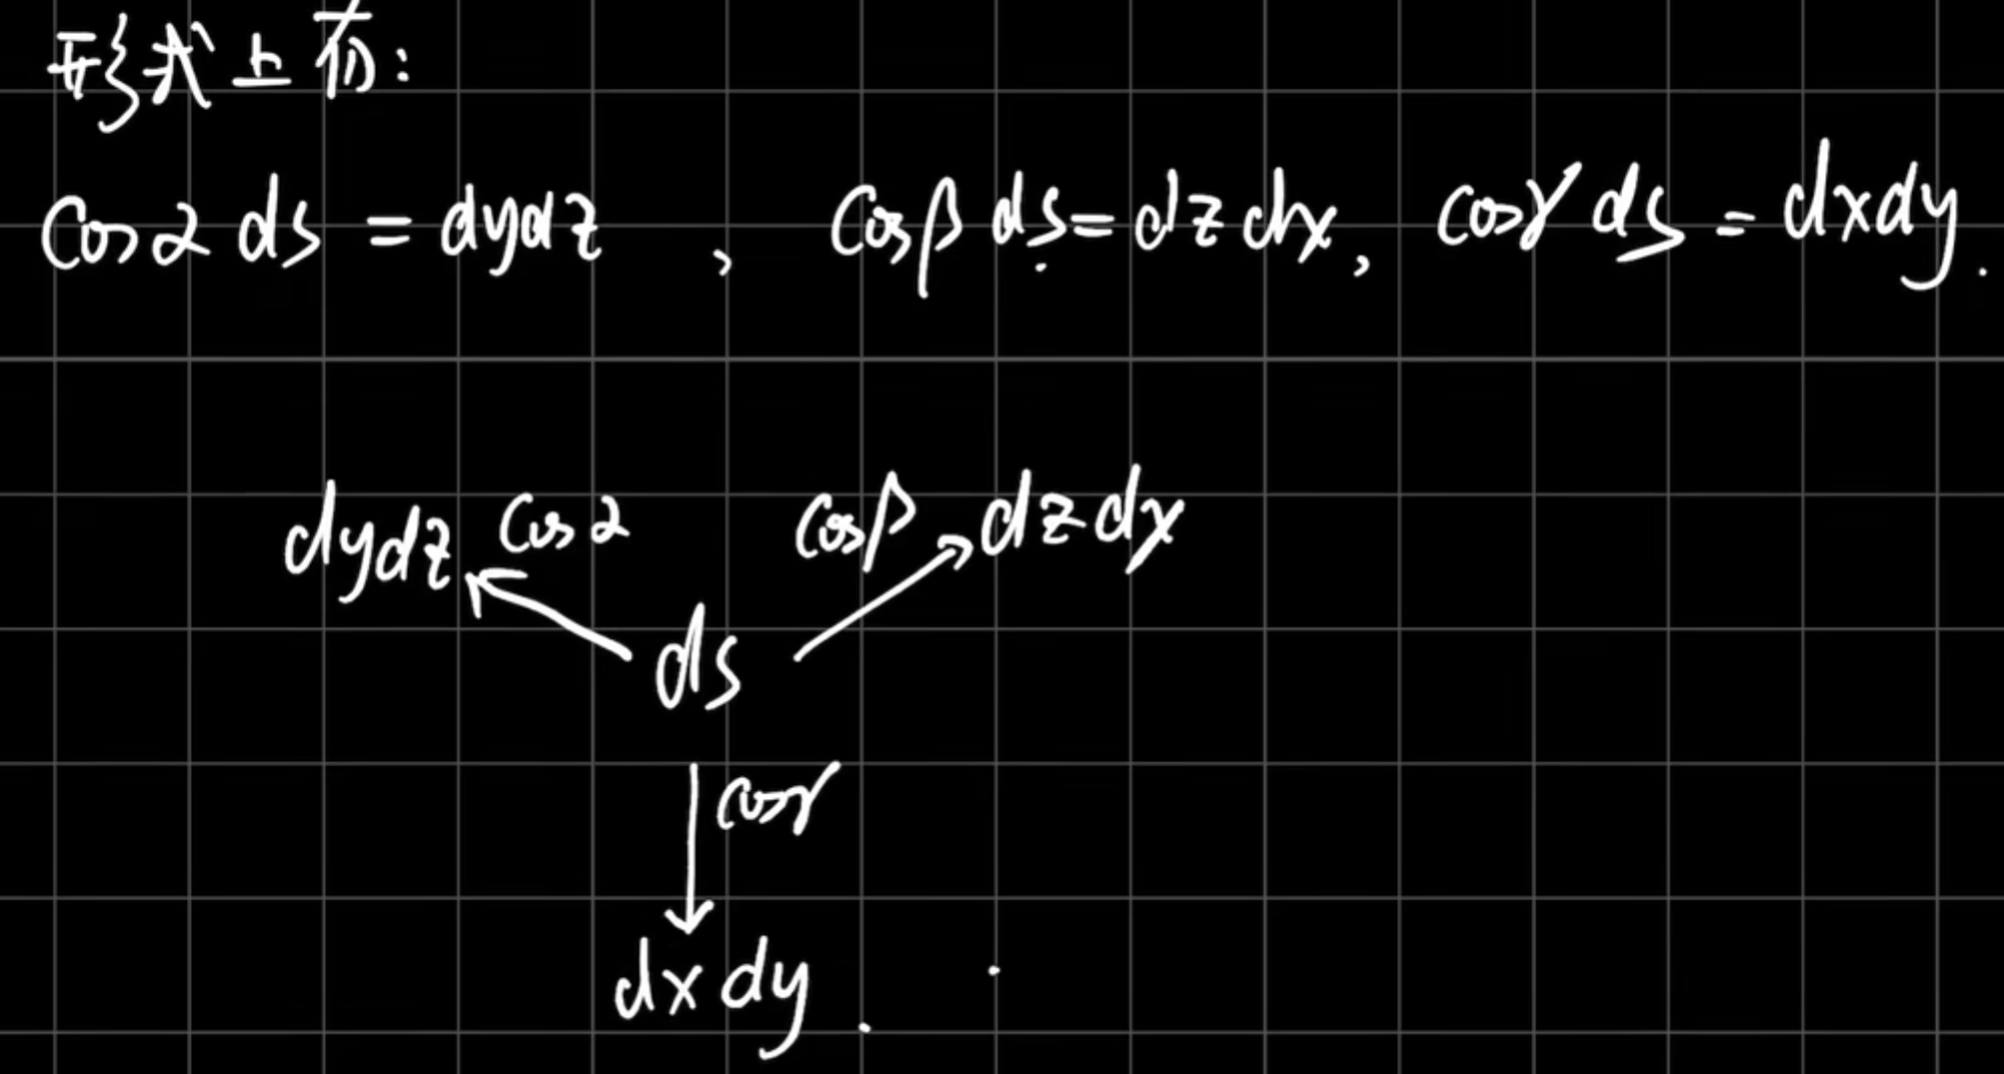 形式上有:
cosα ds = dydz , cosβ ds = dz dx, cosγ ds = dxdy.
dydz cosα cosβ dz dx
ds
cosγ
dx dy.